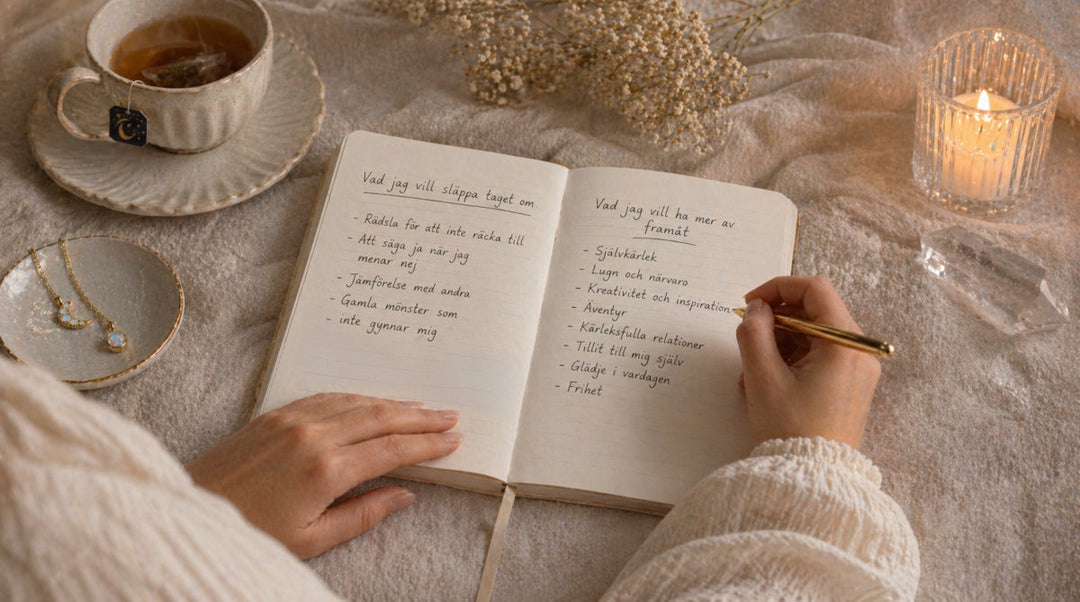 Vad jag vill släppa taget om
- Rädsla för att inte räcka till
- Att säga ja när jag
menar nej
- Jämförelse med andra
- Gamla mönster som
- inte gynnar mig
Vad jag vill ha mer av
framåt
- Självkärlek
- Lugn och närvaro
- Kreativitet och inspiration
- Äventyr
- Kärleksfulla relationer
- Tillit till mig själv
- Glädje i vardagen
- Frihet